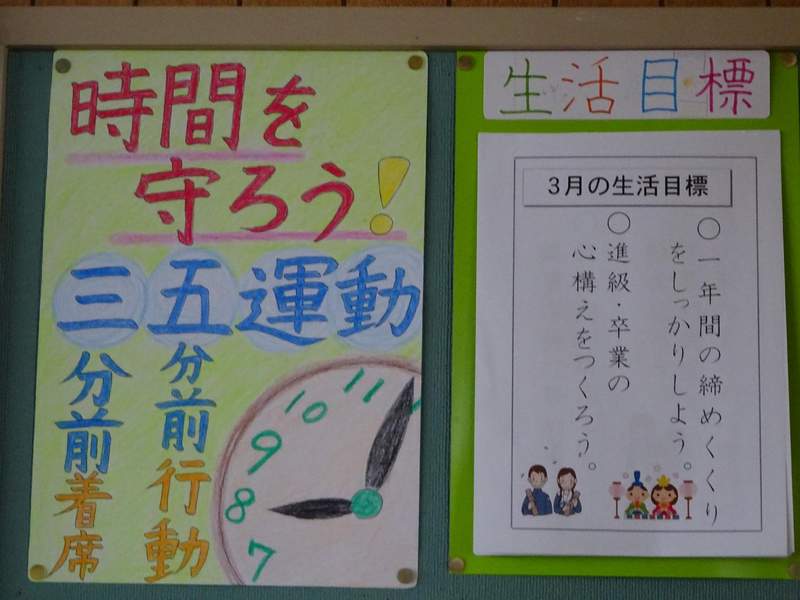 時間を
守ろう!
三五運動
五分前行動
三分前着席
11
10
9
8
7
生活目標
3月の生活目標
○一年間の締めくくり
をしっかりしよう。
○進級・卒業の
心構えをつくろう。